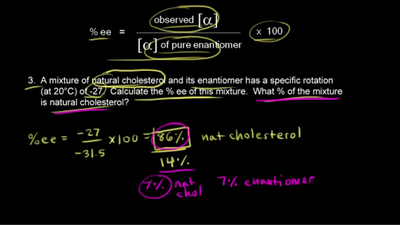 % ee = observed [α] / [α] of pure enantiomer x 100
3. A mixture of natural cholesterol and its enantiomer has a specific rotation
(at 20°C) of -27. Calculate the % ee of this mixture. What % of the mixture
is natural cholesterol?
%ee = -27 / -31.5 x100 = 86% nat cholesterol
14%
7% nat chol 7% enantiomer